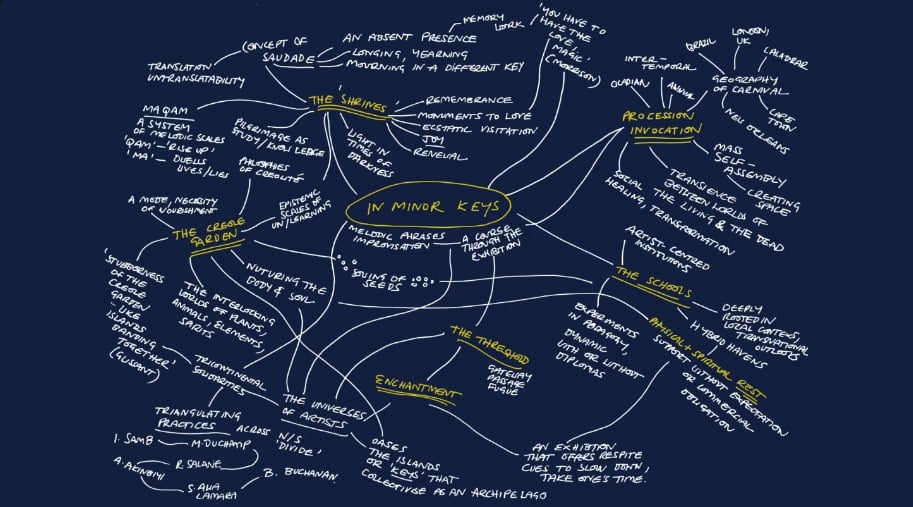 CONCEPT OF
SAUDADE
TRANSLATION
UNTRANSLATABILITY
AN ABSENT PRESENCE
MEMORY
WORK
LONGING, YEARNING
MOURNING IN A DIFFERENT KEY
'YOU HAVE TO
HAVE THE
LOVE,
MAGIC'
(MORRISON)
THE 'SHRINES'
MAQAM
A SYSTEM
OF MELODIC SCALES
'QAM' - 'RISE UP'
'MA' - DWELLS
LIVES/LIES
PILGRIMAGE AS
STUDY/KNOWLEDGE
REMEMBRANCE
MONUMENTS TO LOVE
ECSTATIC VISITATION
JOY
RENEWAL
LIGHT IN
TIMES OF
DARKNESS
PROCESSION
INVOCATION
INTER-
TEMPORAL
ANNUAL
GEOGRAPHY
OF CARNIVAL
BRAZIL
LONDON,
UK
CAPE
TOWN
NEW ORLEANS
MASS
SELF-
ASSEMBLY
CREATING
SPACE
TRANSIENCE
BETWEEN WORLDS OF
THE LIVING & THE DEAD
SOCIAL
HEALING, TRANSFORMATION
IN MINOR KEYS
MELODIC PHRASES
IMPROVISATION
A COURSE
THROUGH THE
EXHIBITION
THE CREOLE
GARDEN
PHILOSOPHIES
OF CREOLITÉ
A MODE, NECESSITY
OF NOURISHMENT
EPISTEMIC
SCALES OF
UN/LEARNING
'STUBBORNNESS
OF THE
CREOLE
GARDEN
- LIKE
ISLANDS
BANDING
TOGETHER'
(GLISSANT)
THE INTERLOCKING
WORLDS OF PLANTS,
ANIMALS, ELEMENTS,
SPIRITS
NUTURING THE
BODY & SOIL
SOWING OF
SEEDS
THE SCHOOLS
ARTIST-CENTRED
INSTITUTIONS
EXPERIMENTS
IN PEDAGOGY,
DYNAMIC
WITH OR WITHOUT
DIPLOMAS
HYBRID HAVENS
DEEPLY
ROOTED IN
LOCAL CONTEXTS,
TRANSNATIONAL
OUTLOOKS
PHYSICAL + SPIRITUAL REST
SUPPORT WITHOUT EXPECTATION
OR COMMERCIAL
OBLIGATION
THE THRESHOLD
GATEWAY
PASSAGE
FUGUE
ENCHANTMENT
TRICONTINENTAL
SOLIDARITIES
THE UNIVERSES
OF ARTISTS
TRIANGULATING
PRACTICES
ACROSS N/S
'DIVIDE'
I. SAMB
M. DUCHAMP
A. AKINBIYI
B. BUCHANAN
OASES
THE ISLANDS
OR 'KEYS' THAT
COLLECTIVISE AS AN ARCHIPELAGO
AN EXHIBITION
THAT OFFERS RESPITE
CUES TO SLOW DOWN,
TAKE ONE'S TIME.